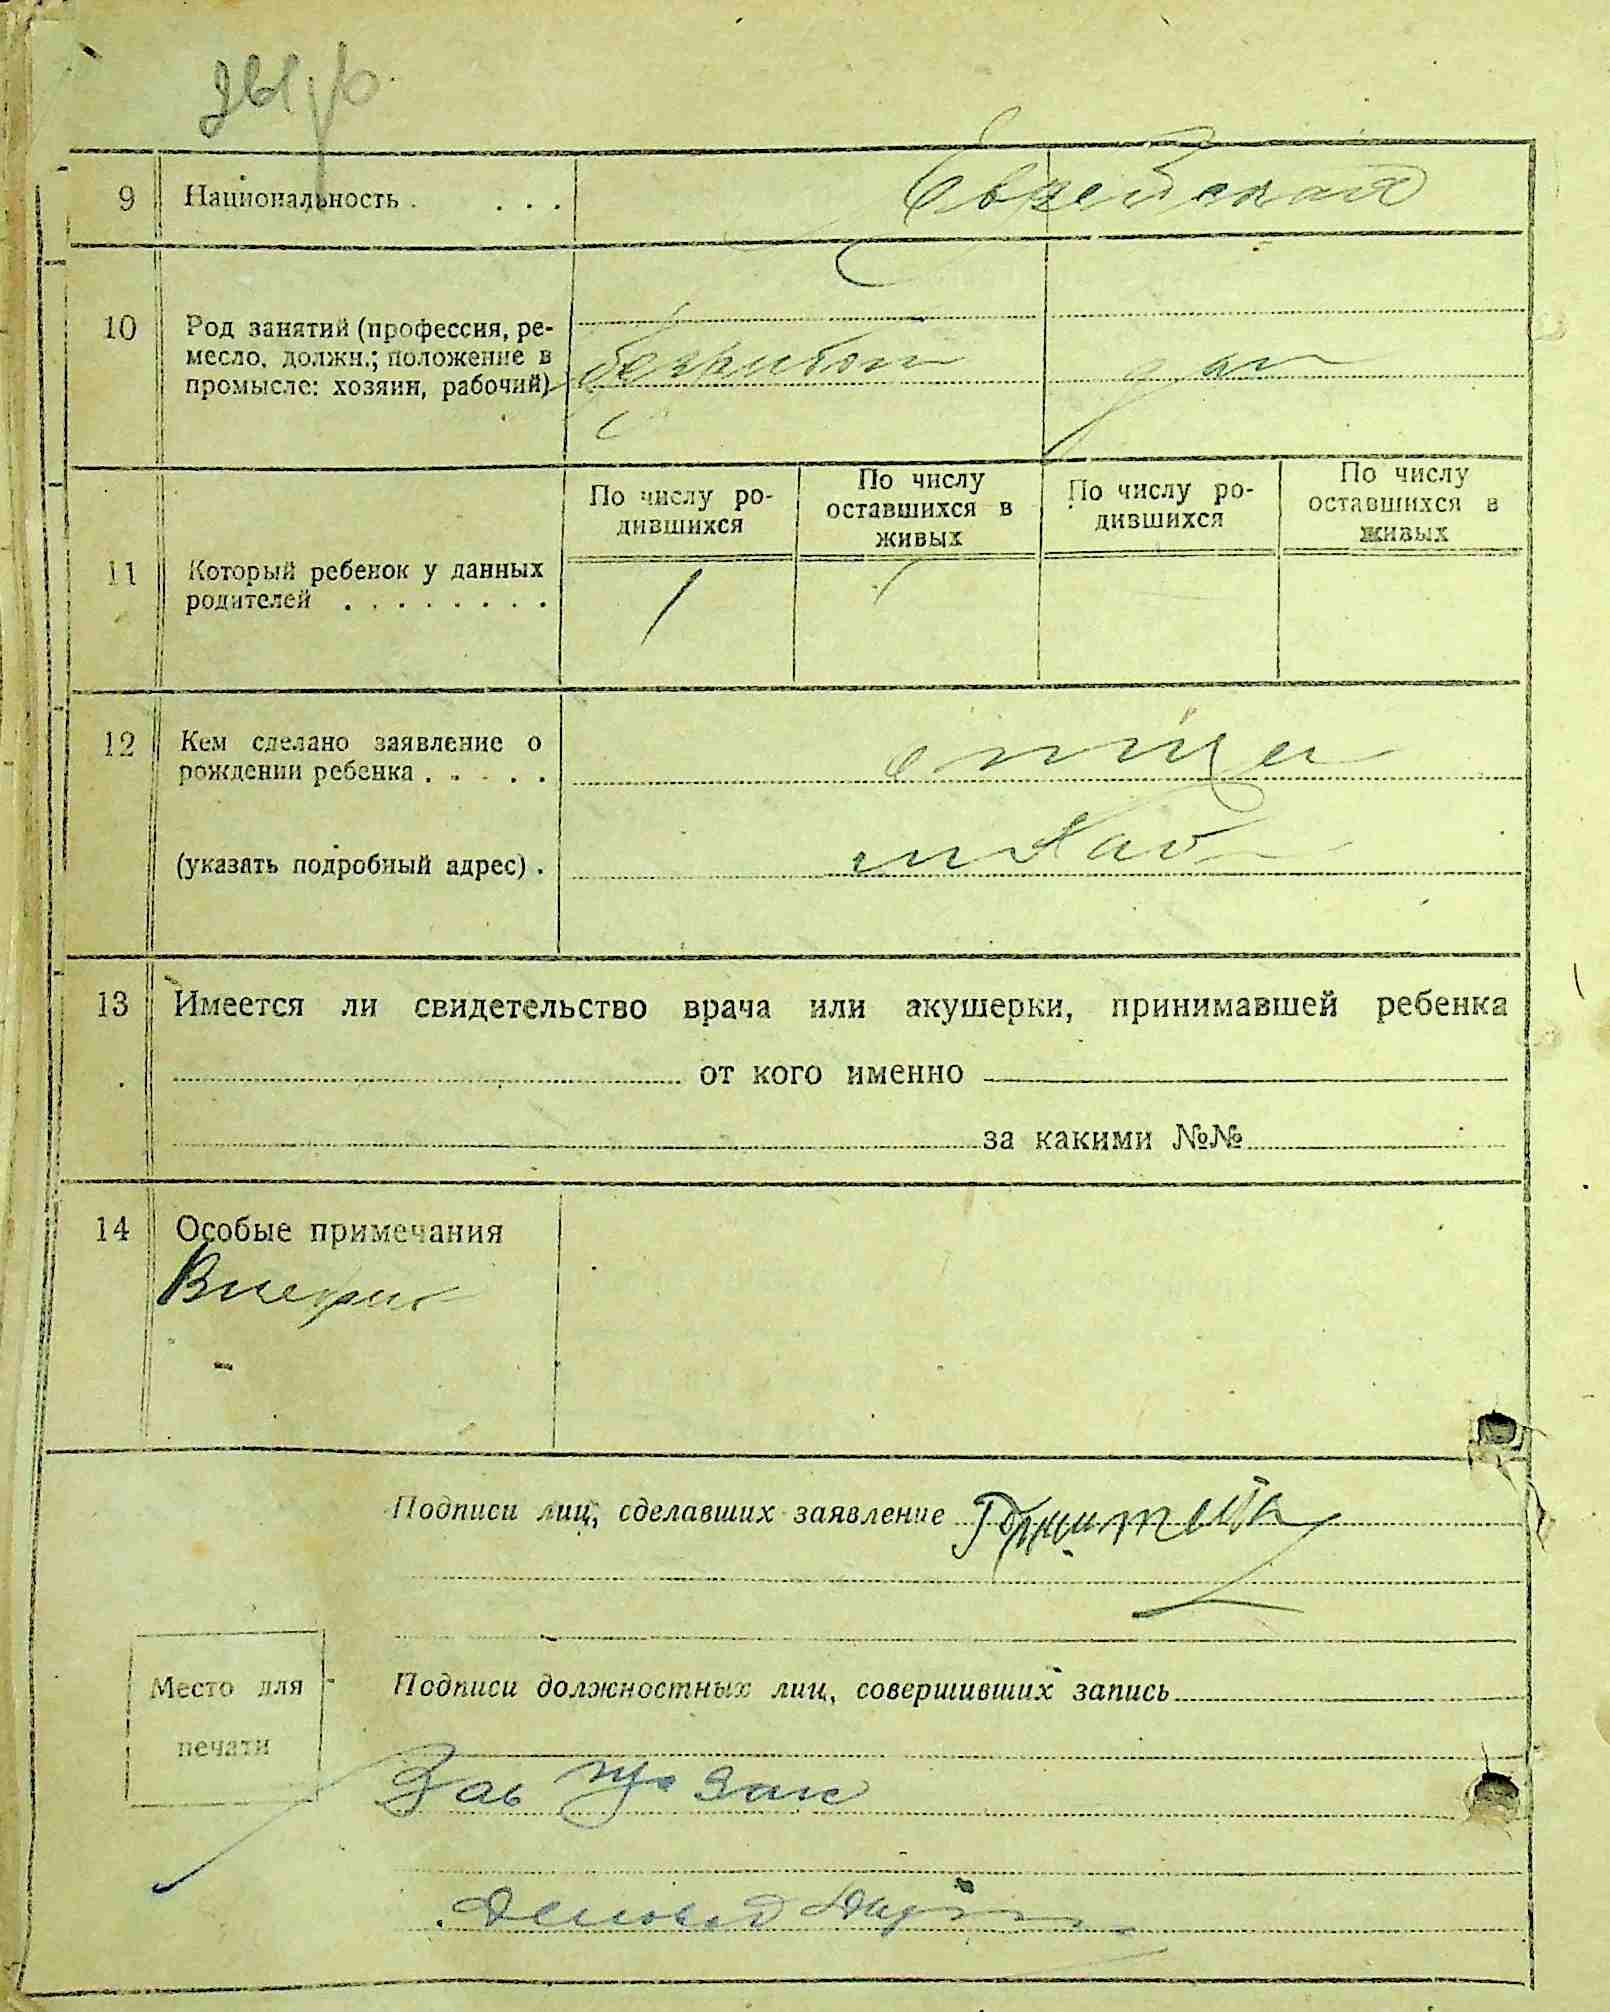 9 Национальность . . . . Еврейская
10 Род занятий (профессия, ре-
месло, должн.; положение в
промысле: хозяин, рабочий)
безработн
По числу ро-
дившихся
По числу
оставшихся в
живых
По числу ро-
дившихся
По числу
оставшихся в
живых
11 Который ребенок у данных
родителей . . . . . . . .
1 1
12 Кем сделано заявление о
рождении ребенка . . . . .
отца
(указать подробный адрес) .
13 Имеется ли свидетельство врача или акушерки, принимавшей ребенка
от кого именно
за какими №№
14 Особые примечания
Подписи лиц, сделавших заявление
Место для
печати
Подписи должностных лиц, совершивших запись
Зав
Деловод